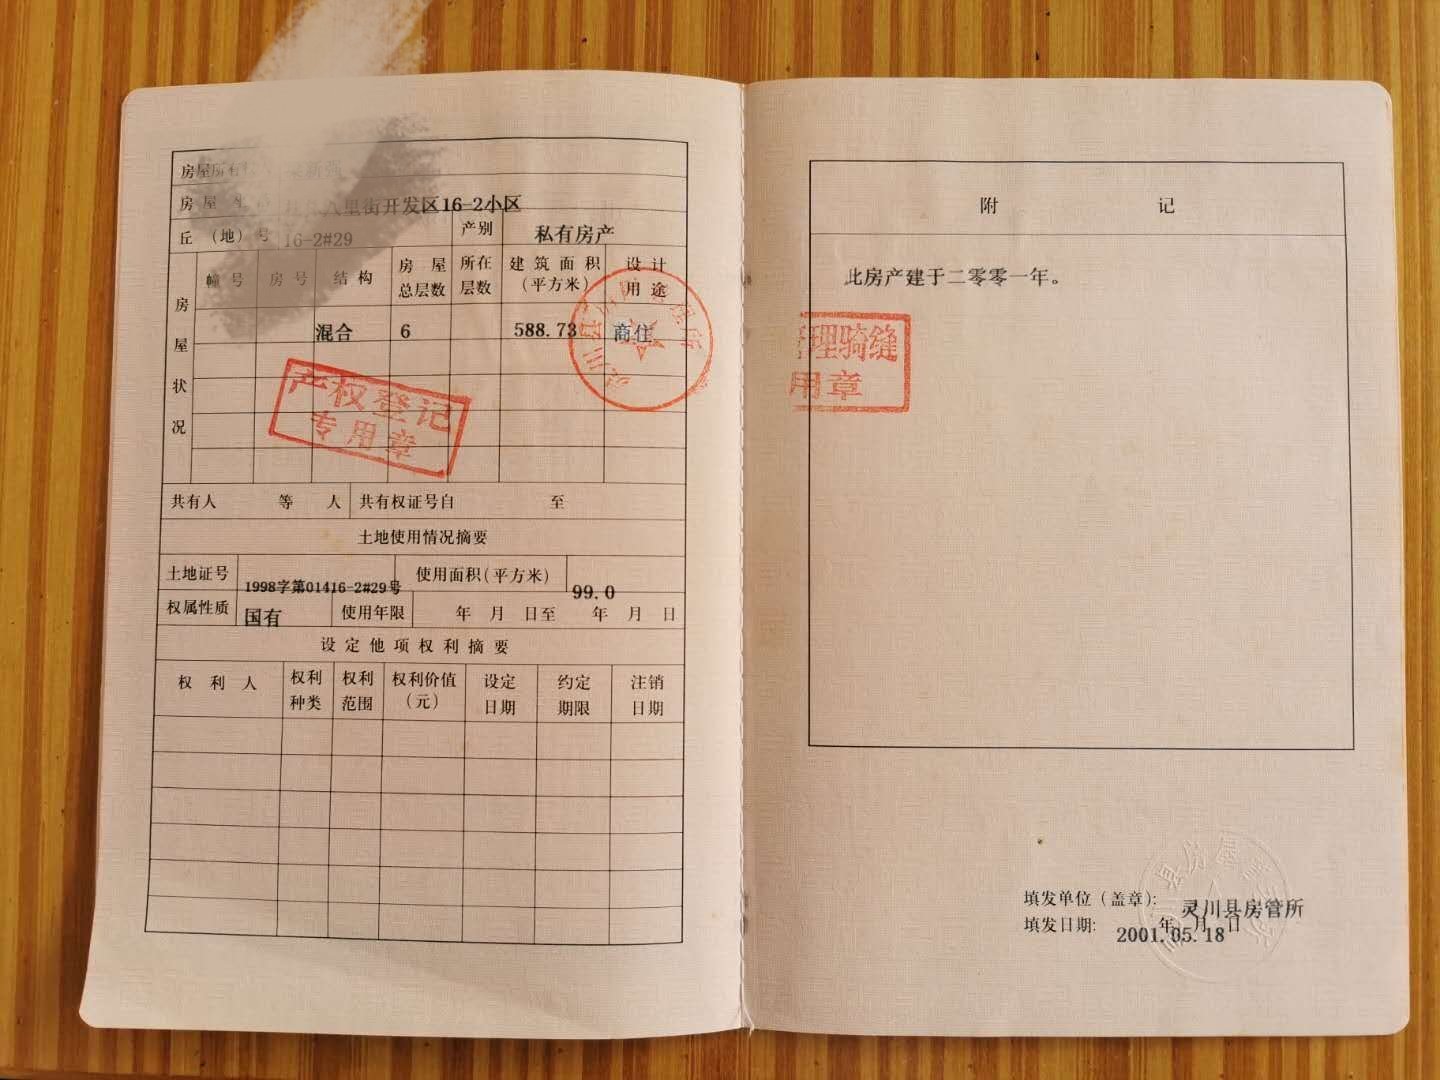 房屋所有权人 新强
房屋 八里街开发区16-2小区
丘（地）号 16-2#29 产别 私有房产
房屋状况
幢号 房号 结构 房屋总层数 所在层数 建筑面积（平方米） 设计用途
混合 6 588.73 商住
产权登记
专用章
共有人 等 人 共有权证号自 至
土地使用情况摘要
土地证号 1998字第01416-2#29号 使用面积(平方米) 99.0
权属性质 国有 使用年限 年 月 日至 年 月 日
设定他项权利摘要
权利人 权利种类 权利范围 权利价值（元） 设定日期 约定期限 注销日期
附 记
此房产建于二零零一年。
管理骑缝
用章
填发单位（盖章）: 灵川县房管所
填发日期: 年 月 日
2001.05.18